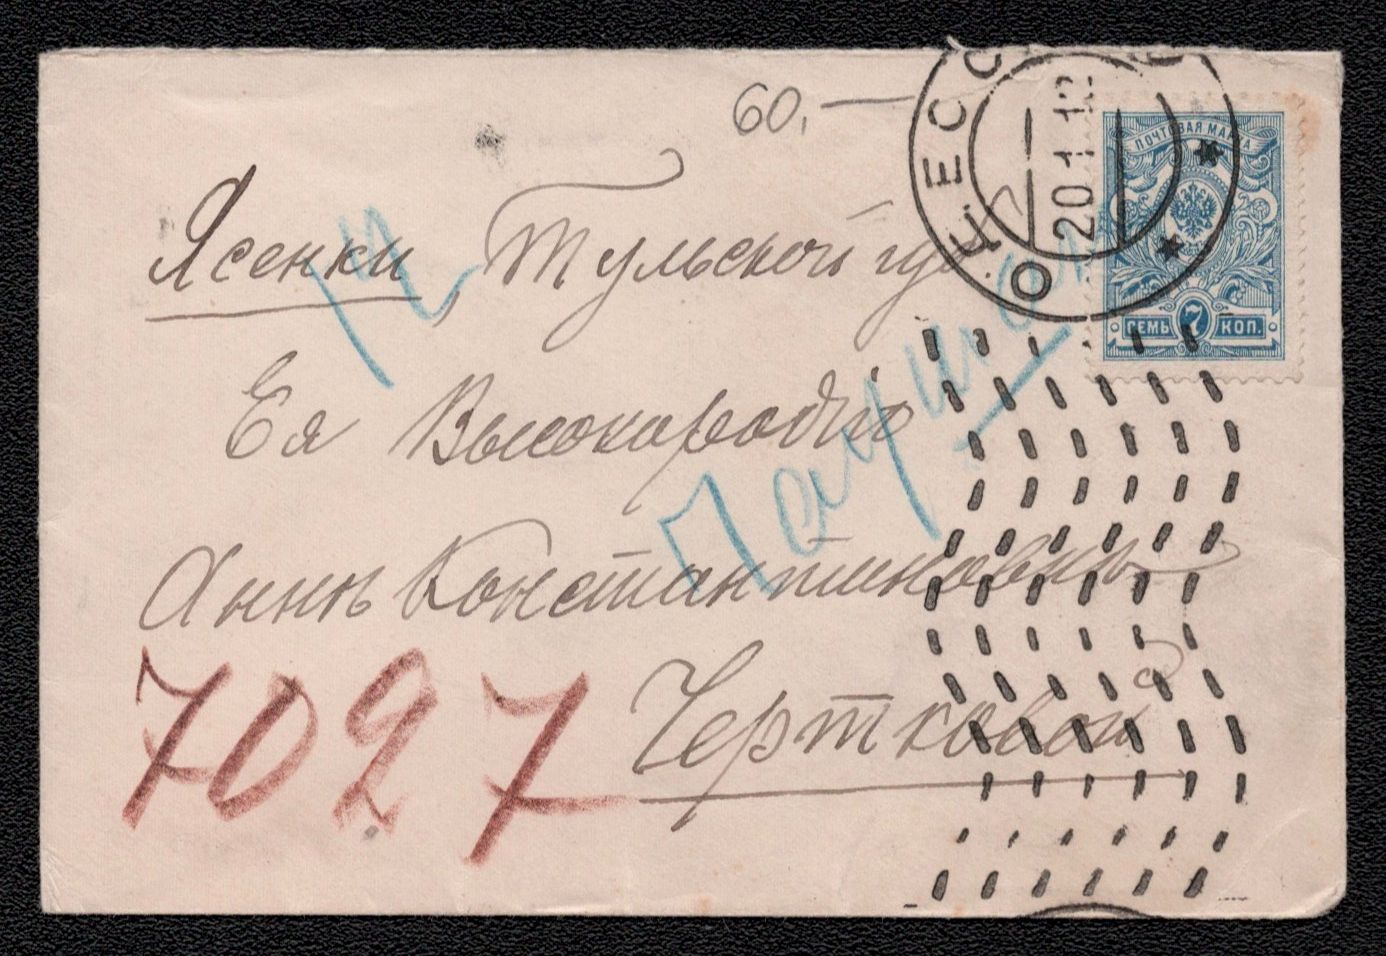 60.—
ОДЕССА
20.1.12
ПОЧТОВАЯ МАРКА
7
СЕМЬ КОП.
Ясенки, Тульской губ
Ея Высокородію
Аннѣ Константиновнѣ
Чертковой
7027